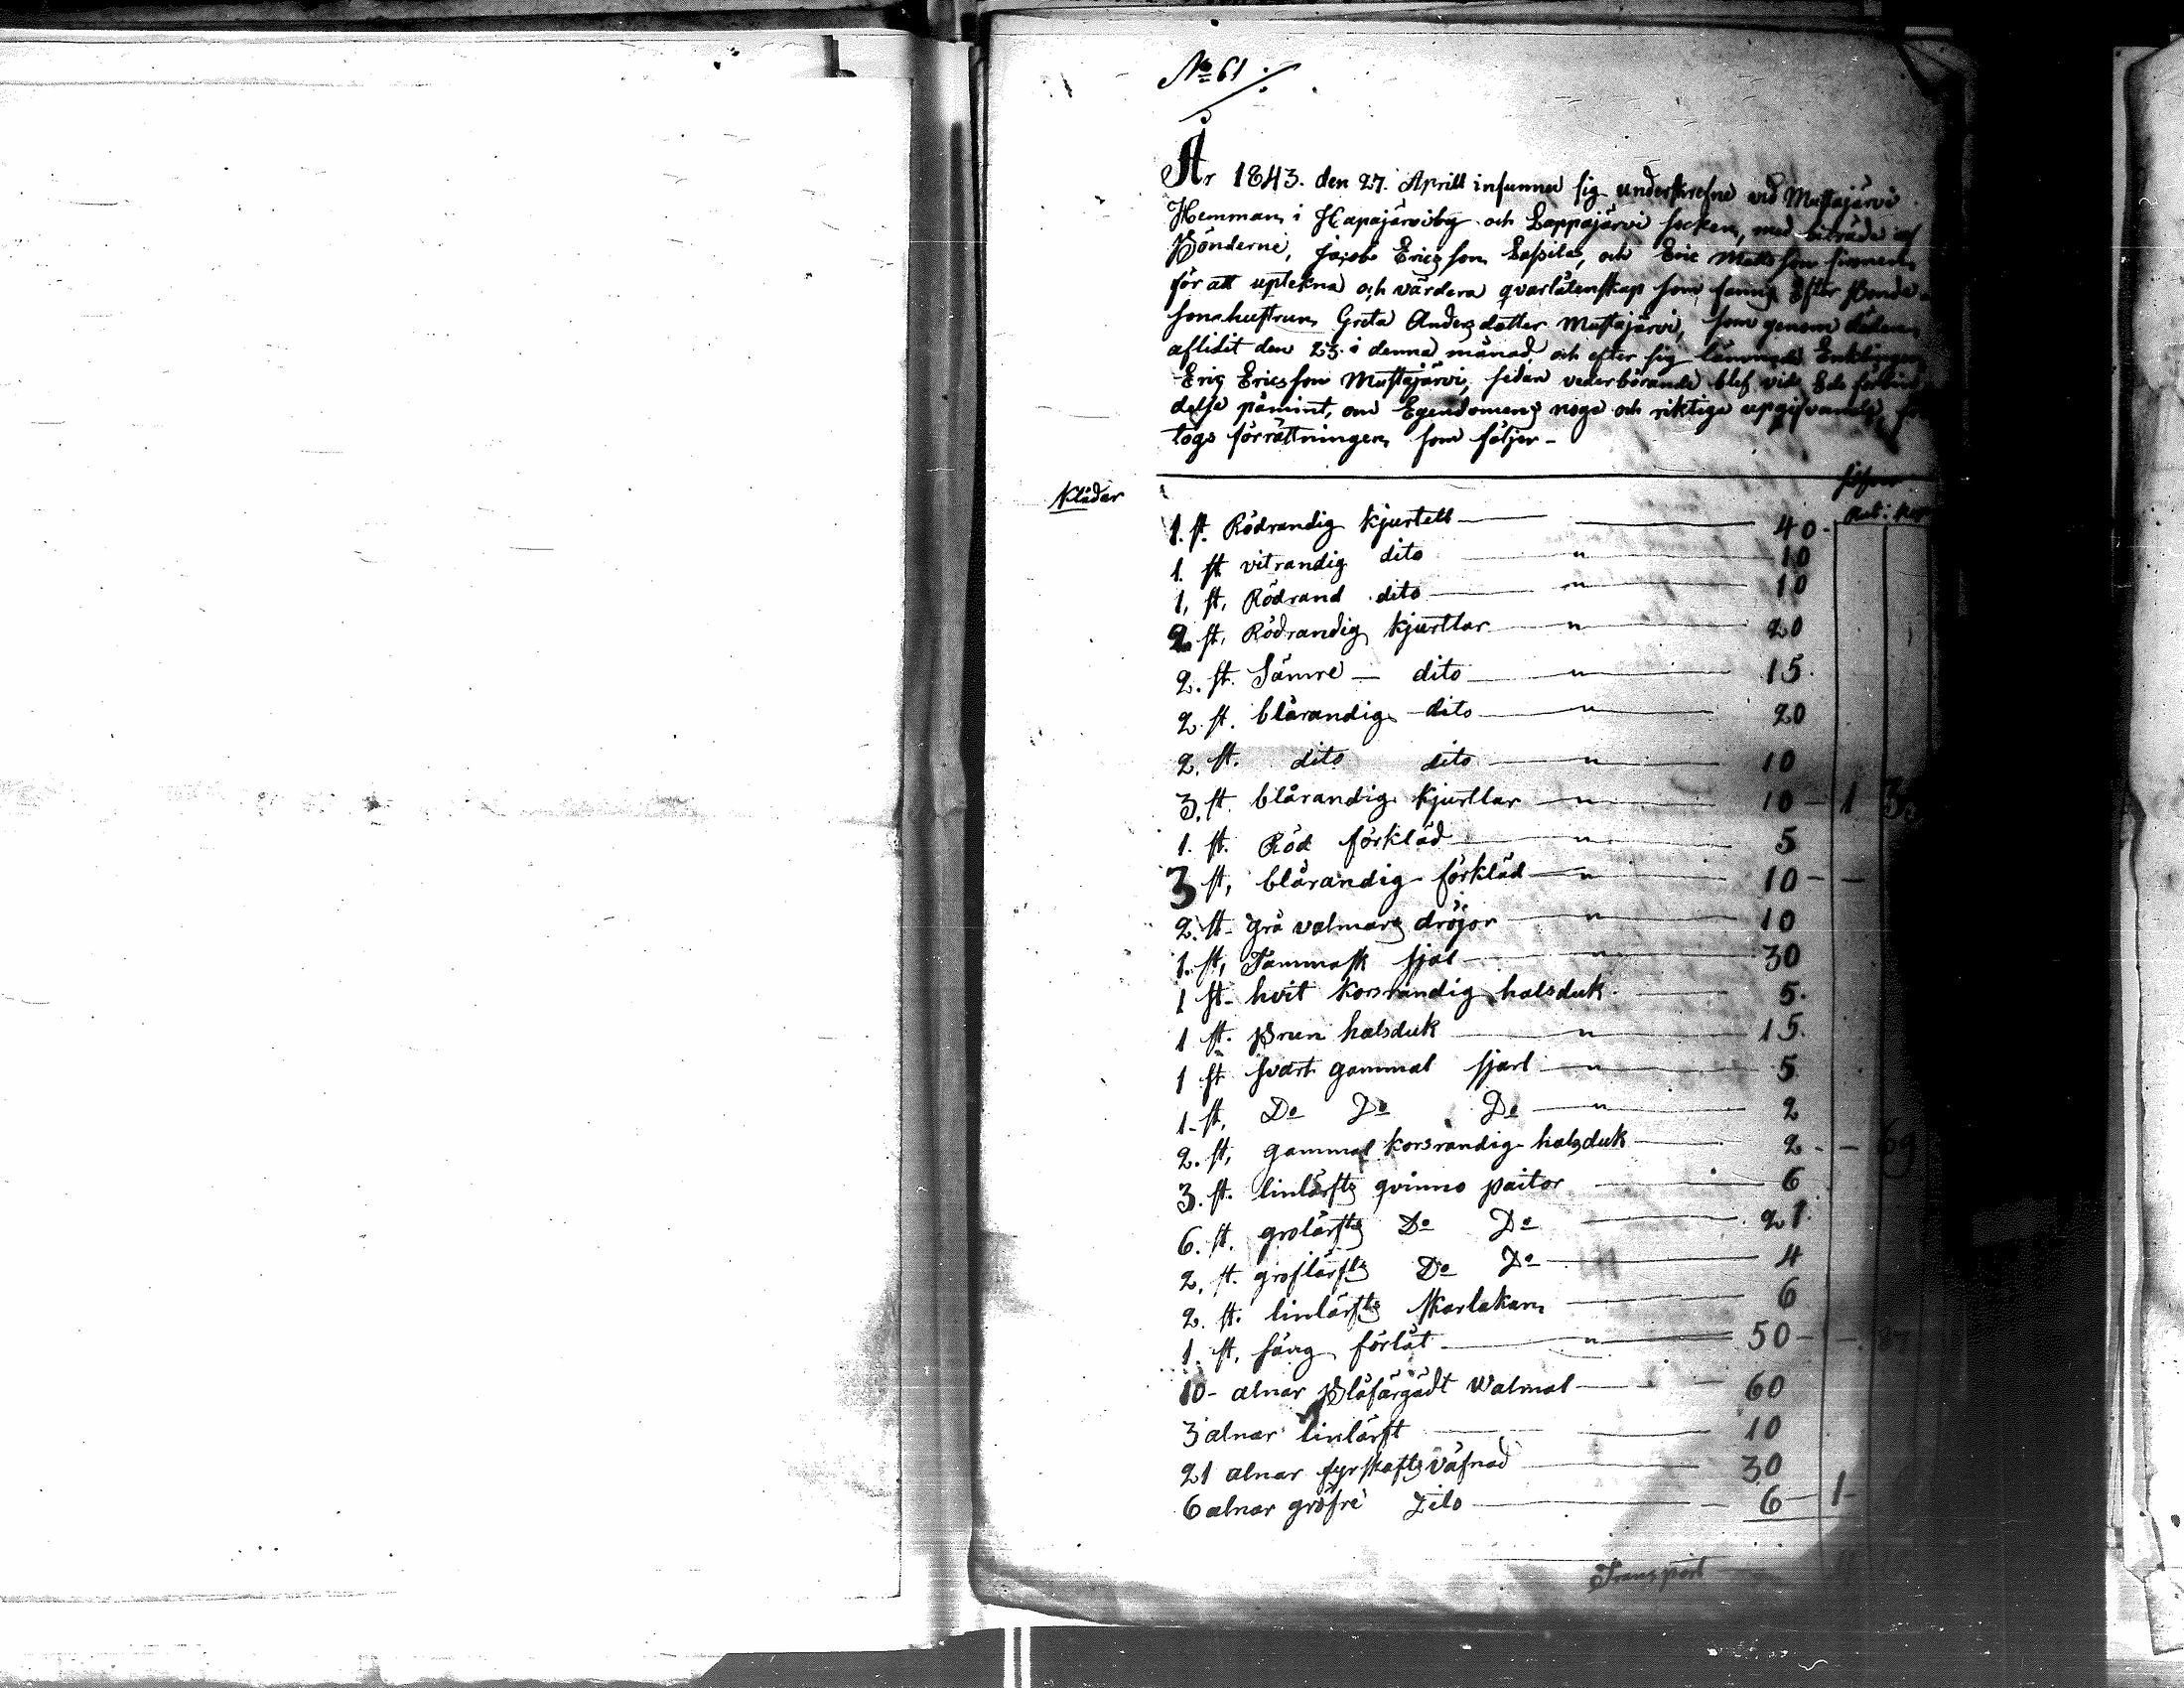 No 61.
År 1843. den 27. Aprill infunno sig underskrefne vid Mustajärvi
Hemman i Kapajärviby och Lappajärvi socken, med biträde af
Bönderne, Jacob Ericsson Lassila, och Eric Mattsson
för att uptekna och värdera qvarlåtenskap som fanns Efter Bonde-
sonshustrun Greta Andersdotter Mustajärvi, som genom döden
aflidit den 23. i denna månad, och efter sig lämnade Enklingen
Eric Ericsson Mustajärvi, sedan vederbörande blef vid Eds förbin-
delse påmint, om Egendomens noga och riktiga upgifvande, så
togs förrättningen som följer-
Silfver
Kläder Rub: Kop
1. st. Rödrandig Kjurtell 40-
1. st vitrandig dito " 10
1, st, Rödrand dito " 10
2 st, Rödrandig kjurtlar " 20
2. st. Sämre - dito " 15.
2. st. blårandig dito " 20
2. st. dito dito " 10
3. st. blårandig kjurtlar " 10 - 1 3
1. st. Röd förkläd " 5
3 st, blårandig förkläd " 10 - -
2. st- grå valmars dröjor " 10
1. st, Tammask sjal " 30
1 st- hvit korsrandig halsduk 5.
1 st. Brun halsduk " 15.
1 st svart gammal sjarl " 5
1- st, Do Do Do " 2
2. st, gammal korsrandig halsduk 2 - - 69
3. st. linlärfts qvinno paitor 6
6. st. grolärfts Do Do 21.
2. st. groflärfts Do Do 4
2. st. linlärfts skarlakan 6
1. st, säng förlåt " 50 - - 87
10- alnar Blåfärgadt Walmal 60
3 alnar linlärft 10
21 alnar fyrskafts väfnad 30
6 alnar gröfre Dito 6 - 1-
Transport